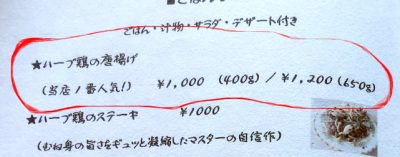 ごはん・汁物・サラダ・デザート付き
★ハーブ鶏の唐揚げ
(当店1番人気!) ¥1,000 (400g) / ¥1,200 (650g)
★ハーブ鶏のステーキ ¥1000
(むね身の旨さをギュッと凝縮したマスターの自信作)